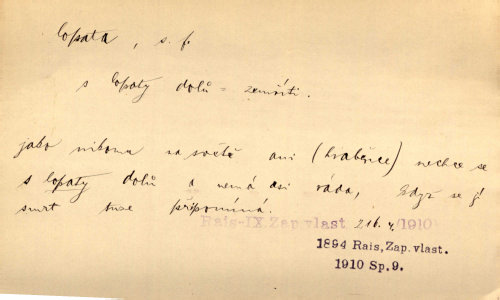 lopata, s. f.
s lopaty dolů = zemříti.
jako nikomu na světě ani (hraběnce) nechce se
s lopaty dolů a nemá asi ráda, když se jí
smrt tuze připomíná.
Rais-IX. Zap. vlast 216. /1910)
1894 Rais, Zap. vlast.
1910 Sp. 9.